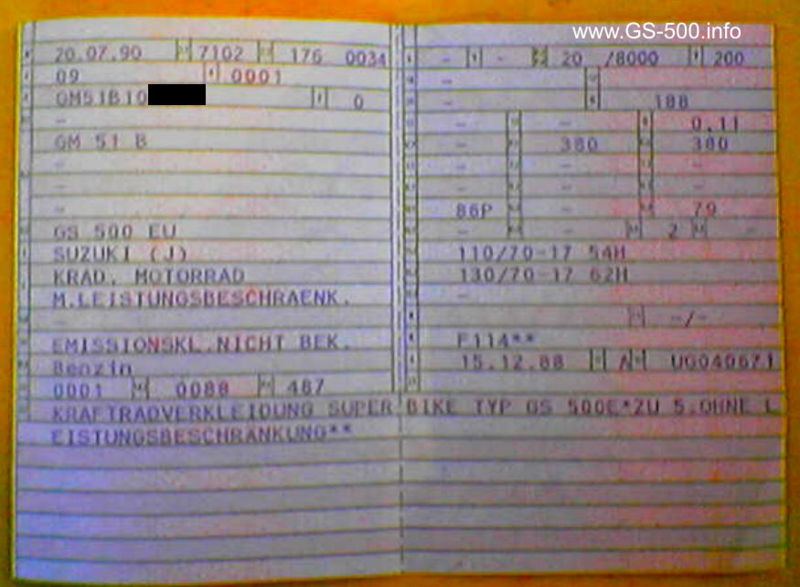 www.GS-500.info
20.07.90 7102 176 0034
09 0001
GM51B10 0
-
GM 51 B
-
-
-
GS 500 EU
SUZUKI (J)
KRAD. MOTORRAD
M.LEISTUNGSBESCHRAENK.
-
EMISSIONSKL.NICHT BEK.
Benzin
0001 0088 487
- - 20 /8000 200
-
188
- - 0,11
- 380 380
- - -
- - -
86P - 79
- - 2 -
110/70-17 54H
130/70-17 62H
-
-/-
F114**
15.12.88 A UG040671
KRAFTRADVERKLEIDUNG SUPER BIKE TYP GS 500E*ZU 5.OHNE L
EISTUNGSBESCHRÄNKUNG**